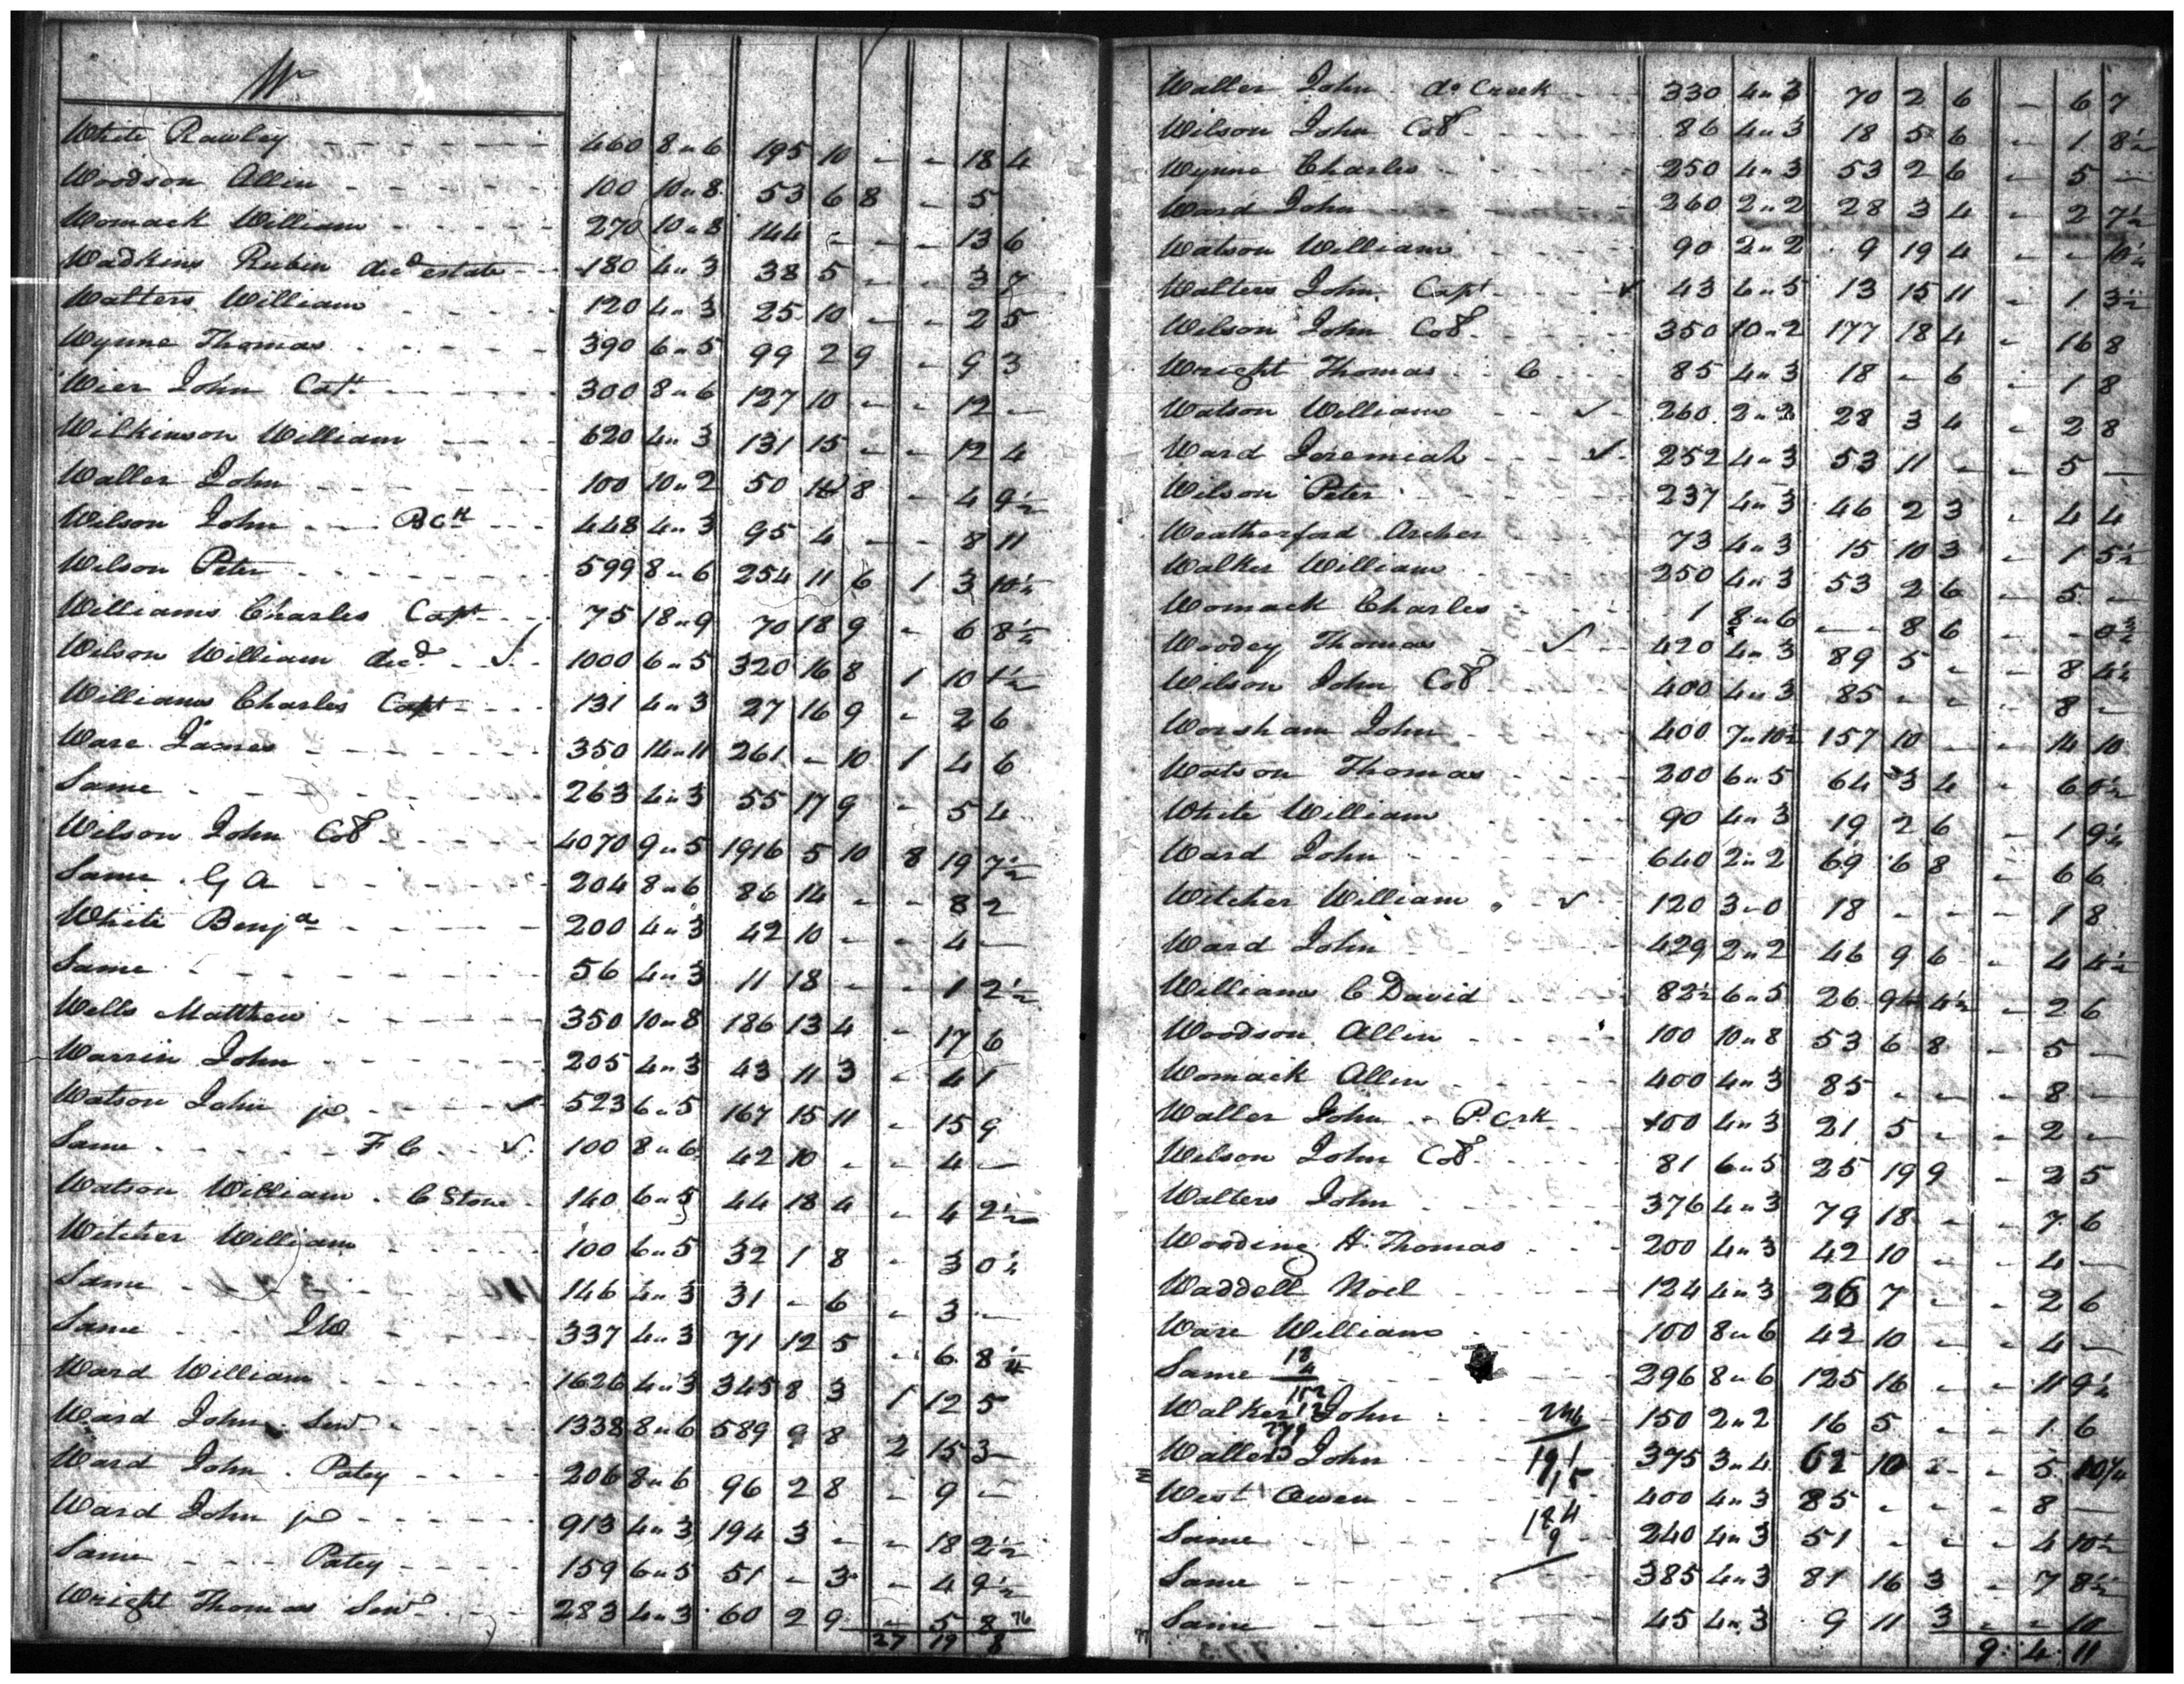 W
White Rawley 460 8 " 6 195 10 - - 18 4
Woodson Allin 100 10 " 8 53 6 8 - 5
Womack William 270 10 " 8 144 - - - 13 6
Wadkins Rubin decd estate 180 4 " 3 38 5 - - 3 7
Watters William 120 4 " 3 25 10 - - 2 5
Wynne Thomas 390 6 " 5 99 2 9 - 9 3
Wier John Capt 300 8 " 6 127 10 - - 12 -
Wilkinson William 620 4 " 3 131 15 - - 12 4
Waller John 100 10 " 2 50 16 8 - 4 9½
Wilson John B Ck 448 4 " 3 95 4 - - 8 11
Wilson Peter 599 8 " 6 254 11 6 1 3 10½
Williams Charles Capt 75 18 " 9 70 18 9 - 6 8½
Wilson William decd ✓ 1000 6 " 5 320 16 8 1 10 1½
Williams Charles Capt 131 4 " 3 27 16 9 - 2 6
Ware James 350 14 " 11 261 - 10 1 4 6
Same 263 4 " 3 55 17 9 - 5 4
Wilson John Col 4070 9 " 5 1916 5 10 8 19 7½
Same G A 204 8 " 6 86 14 - - 8 2
White Benja 200 4 " 3 42 10 - - 4 -
Same 56 4 " 3 11 18 - - 1 2½
Wells Matthew 350 10 " 8 186 13 4 - 17 6
Warrin John 205 4 " 3 43 11 3 - 4 1
Watson John jr ✓ 523 6 " 5 167 15 11 - 15 9
Same F C ✓ 100 8 " 6 42 10 - - 4 -
Watson William C Stone 140 6 " 5 44 18 4 - 4 2½
Witcher William 100 6 " 5 32 1 8 - 3 0½
Same 146 4 " 3 31 - 6 - 3 -
Same 337 4 " 3 71 12 5 - 6 8¼
Ward William 1626 4 " 3 345 8 3 1 12 5
Ward John Senr 1338 8 " 6 589 9 8 2 15 3
Ward John Patey 206 8 " 6 96 2 8 - 9 -
Ward John jr 913 4 " 3 194 3 - - 18 2½
Same Patey 159 6 " 5 51 - 3 - 4 9½
Wright Thomas Senr 283 4 " 3 60 2 9 - 5 8
27 19 8
Waller John do Creek 330 4 " 3 70 2 6 - 6 7
Wilson John Col 86 4 " 3 18 5 6 - 1 8½
Wynne Charles 250 4 " 3 53 2 6 - 5 -
Ward John 260 2 " 2 28 3 4 - 2 7½
Watson William 90 2 " 2 9 19 4 - - 10½
Walters John Capt ✓ 43 6 " 5 13 15 11 - 1 3½
Wilson John Col 350 10 " 2 177 18 4 - 16 8
Wright Thomas C 85 4 " 3 18 - 6 - 1 8
Watson William ✓ 260 2 " 2 28 3 4 - 2 8
Ward Jeremiah ✓ 252 4 " 3 53 11 - - 5 -
Wilson Peter 237 4 " 3 46 2 3 - 4 4
Weatherford Archer 73 4 " 3 15 10 3 - 1 5½
Walker William 250 4 " 3 53 2 6 - 5 -
Womack Charles 1 8 " 6 - 8 6 - - 0¾
Woodey Thomas ✓ 420 4 " 3 89 5 - - 8 4½
Wilson John Col 400 4 " 3 85 - - - 8 -
Worsham John 400 7 " 10½ 157 10 - - 14 10
Watson Thomas 200 6 " 5 64 3 4 - 6 0½
White William 90 4 " 3 19 2 6 - 1 9½
Ward John 640 2 " 2 69 6 8 - 6 6
Witcher William ✓ 120 3 - 0 18 - - - 1 8
Ward John 429 2 " 2 46 9 6 - 4 4½
Williams C David 82½ 6 " 5 26 9 4½ - 2 6
Woodson Allin 100 10 " 8 53 6 8 - 5 -
Womack Allen 400 4 " 3 85 - - - 8 -
Waller John P. Crk 100 4 " 3 21 5 - - 2 -
Wilson John Col 81 6 " 5 25 19 9 - 2 5
Walters John 376 4 " 3 79 18 - - 7 6
Wooding H. Thomas 200 4 " 3 42 10 - - 4 -
Waddell Noel 124 4 " 3 26 7 - - 2 6
Ware William 100 8 " 6 42 10 - - 4 -
Same 296 8 " 6 125 16 - - 11 9½
Walker John 150 2 " 2 16 5 - - 1 6
Wallers John 375 3 " 4 62 10 - - 5 10¼
West Owen 400 4 " 3 85 - - - 8 -
Same 240 4 " 3 51 - - - 4 10½
Same 385 4 " 3 81 16 3 - 7 8½
Same 45 4 " 3 9 11 3 - - 10
9 : 4 : 11